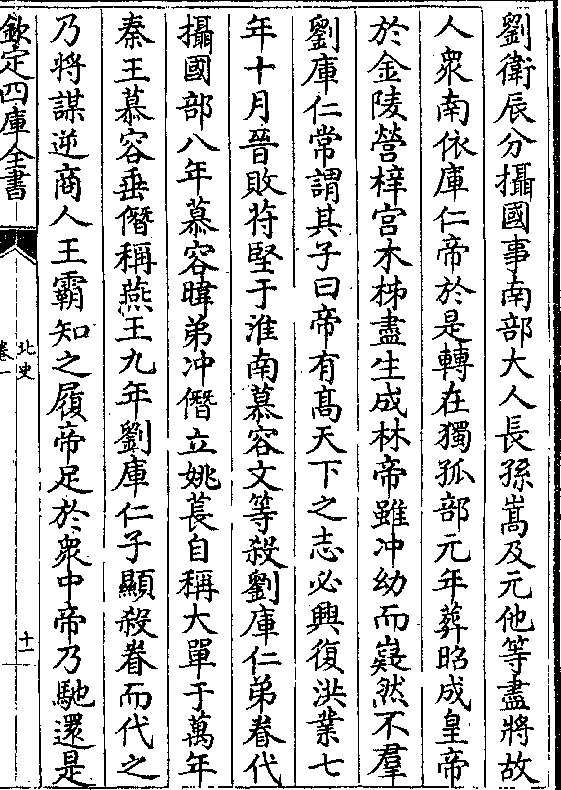 劉衛辰分攝國事南部大人長孫嵩及元他等盡將故
人衆南依庫仁帝於是轉在獨孤部元年葬昭成皇帝
於金陵營梓宫木柹盡生成林帝雖冲幼而嶷然不羣
劉庫仁常謂其子曰帝有髙天下之志必興復洪業七
年十月晉敗苻堅于淮南慕容文等殺劉庫仁弟眷代
攝國部八年慕容暐弟冲僭立姚萇自稱大單于萬年
秦王慕容垂僭稱燕王九年劉庫仁子顯殺眷而代之
乃將謀逆商人王霸知之履帝足於衆中帝乃馳還是
欽定四庫全書
北史
卷一
十一